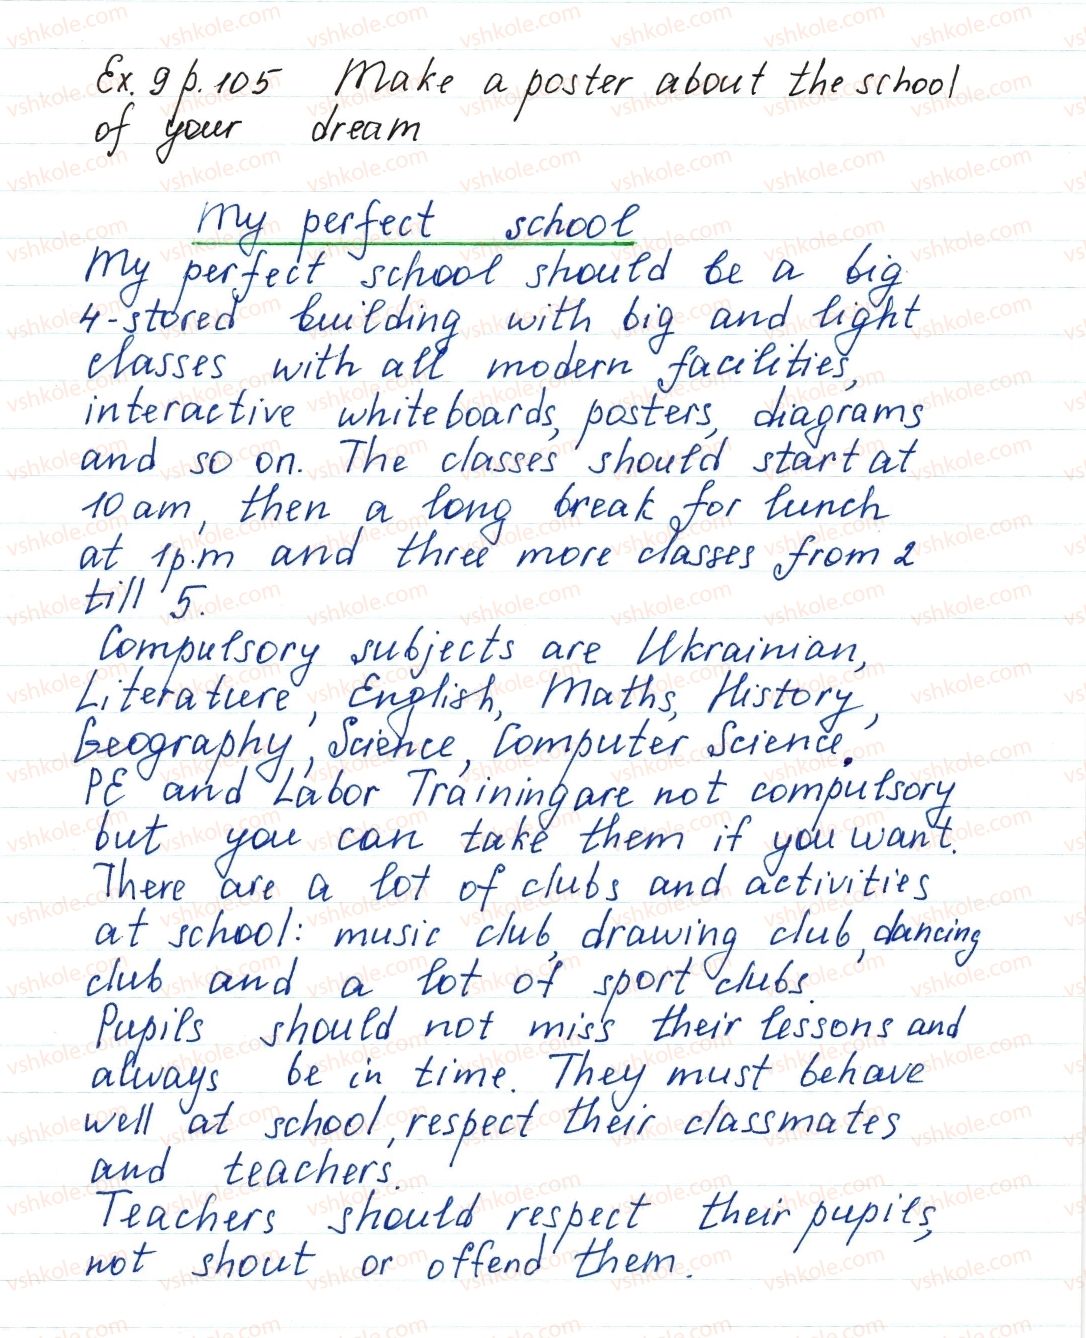 Ex. 9 p. 105 Make a poster about the school
of your dream
My perfect school
My perfect school should be a big
4-stored building with big and light
classes with all modern facilities,
interactive whiteboards, posters, diagrams
and so on. The classes should start at
10 am, then a long break for lunch
at 1p.m and three more classes from 2
till 5.
Compulsory subjects are Ukrainian,
Literature, English, Maths, History,
Geography, Science, Computer Science.
PE and Labor Training are not compulsory
but you can take them if you want.
There are a lot of clubs and activities
at school: music club, drawing club, dancing
club and a lot of sport clubs.
Pupils should not miss their lessons and
always be in time. They must behave
well at school, respect their classmates
and teachers.
Teachers should respect their pupils,
not shout or offend them.